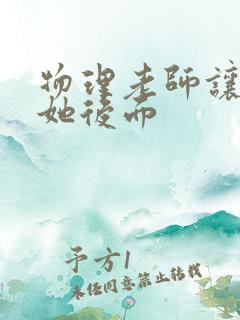 物理老師讓
她後面
予方1
未经同意禁止转载